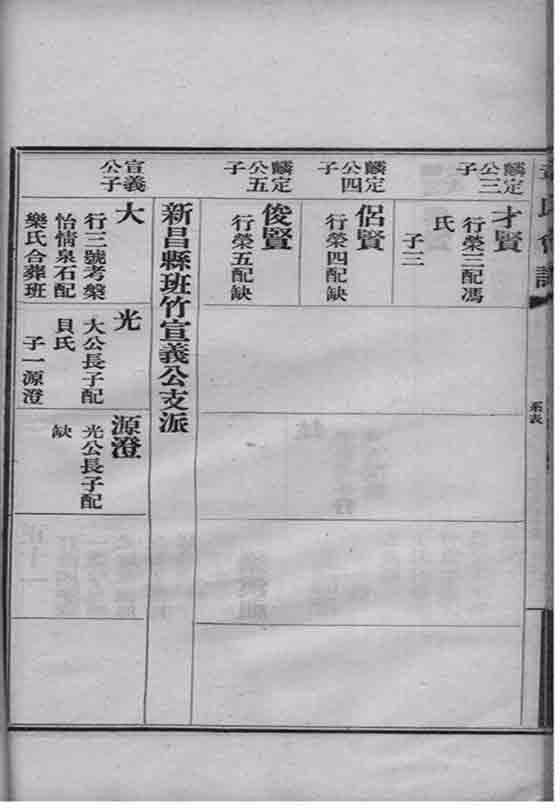 氏會譜
系表
麟定
公三
子
才賢
行榮三配馮
氏
子三
麟定
公四
子
侶賢
行榮四配缺
麟定
公五
子
俊賢
行榮五配缺
新昌縣班竹宣義公支派
宣義
公子
大
行三號考槃
怡情泉石配
樂氏合葬班
光
大公長子配
貝氏
子一源澄
源澄
光公長子配
缺